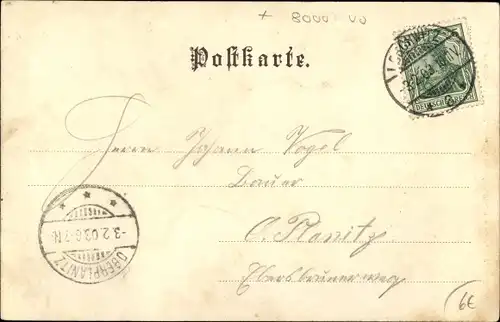 + 8000
Postkarte.
DEUTSCHES REICH
Herrn Johann Vogel
Bauer
O. Planitz
Ebersbrunnerweg
OBERPLANITZ
-3.2.03.6-7.N.
6€